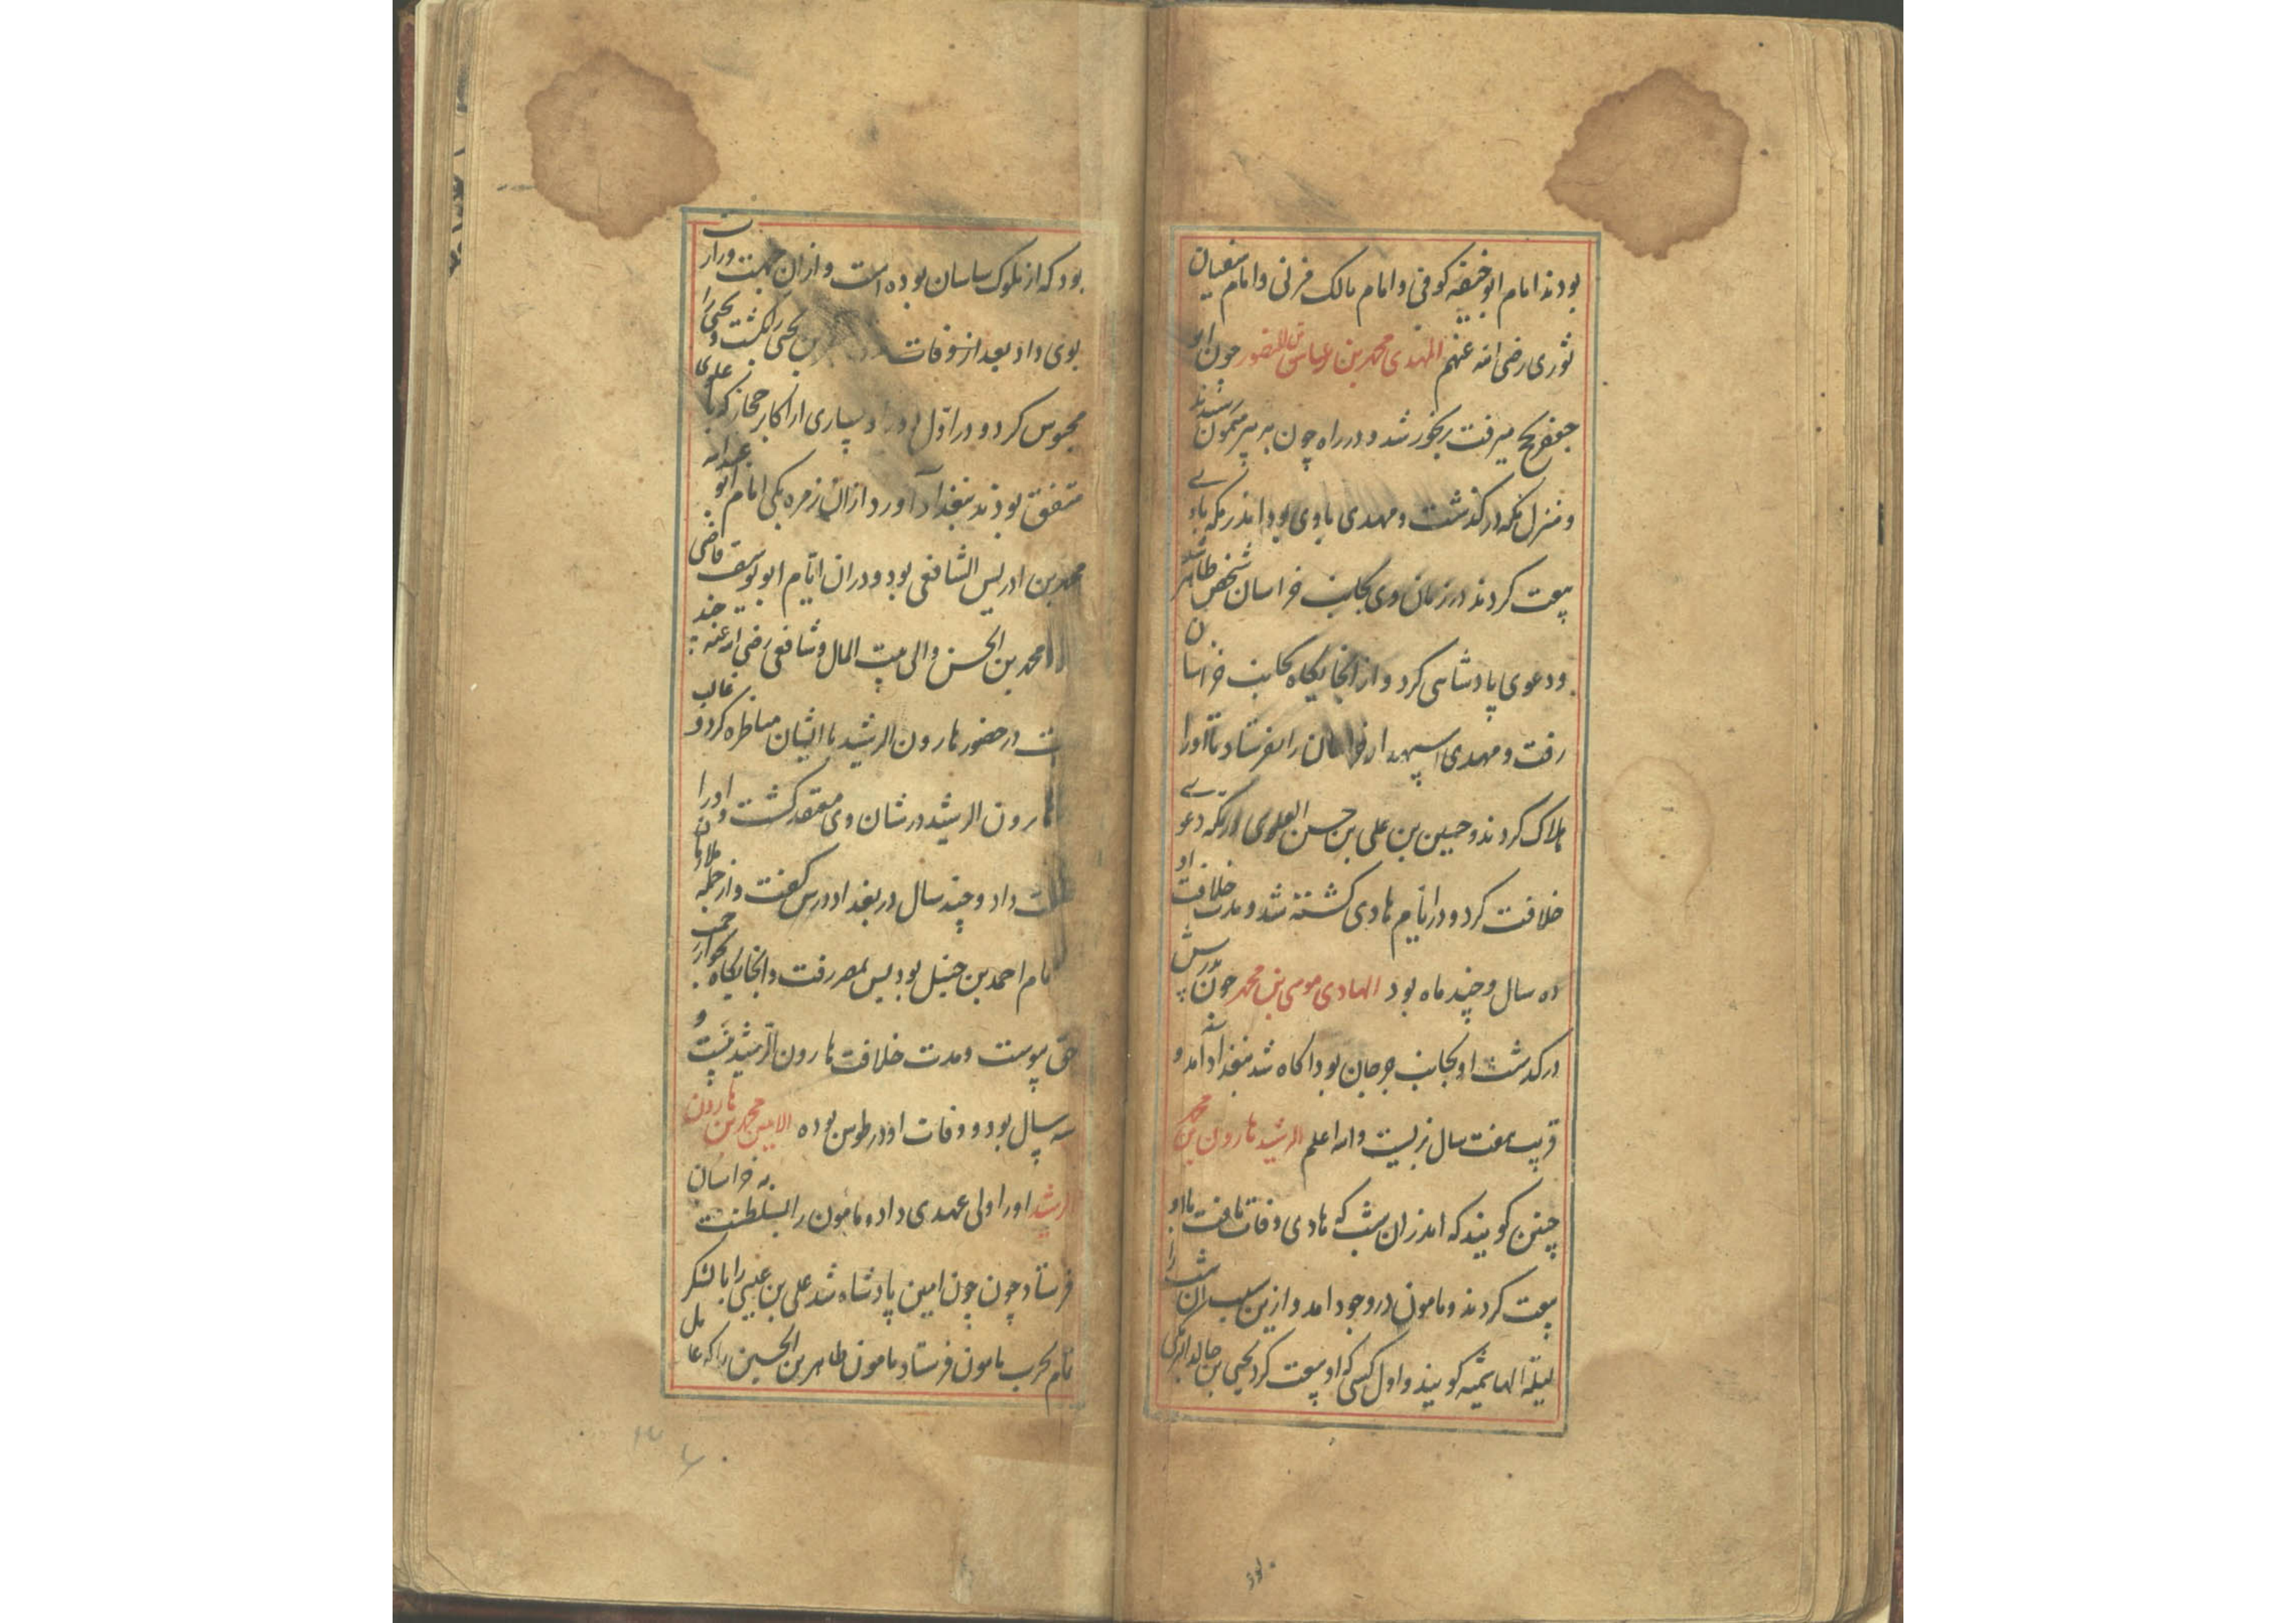 بودند امام ابوحنیفه کوفی و امام مالک قرنی و امام سفیان
ثوری رضی الله عنهم المهدی محمد بن عباس المنصور چون ابو
جعفر بحج میرفت رنجور شد و در راه چون به بیر میمون رسیدند
و منزل مکه درگذشت و مهدی با وی بود اندر مکه با وی
بیعت کردند در زمان وی بجانب خراسان شخصی ظاهر شد
و دعوی پادشاهی کرد و از انجایکاه بجانب خراسان
رفت و مهدی اسپهدار خراسان را بفرستاد تا اورا
هلاک کردند و حسین بن علی بن حسن العلوی در مکه دعوی
خلافت کرد و در ایام هادی کشته شد و مدت خلافت او
ده سال و چند ماه بود الهادی موسی بن محمد چون پدرش
درکدشت او بجانب جرجان بود اکاه شد ببغداد آمد و
قریب هفت سال بزیست والله اعلم الرشید هارون بن محمد
چنین کویند که اندران شب که هادی وفات یافت با او
بیعت کردند و مامون در وجود امد و ازین سبب ان شب را
لیلة الهاشمیه کویند و اول کسی که او بیعت کرد یحیی بن خالد البرمکی
بود که از ملوک ساسان بوده است و ازان جهت وزارت
بوی داد بعد از وفات بن یحیی را بکشت و یحیی را
محبوس کرد و در اول بسیاری از اکابر حجاز که با علوی
متفق بودند ببغداد آورد ازان زمره یکی امام ابو عبدالله
محمد بن ادریس الشافعی بود و دران ایام ابو یوسف قاضی
محمد بن الحسن والی بیت المال و شافعی رضی الله عنه چند
در حضور هارون الرشید با ایشان مناظره کرد و غالب
هارون الرشید در شان وی معتقد کشت و اورا
داد و چند سال در بغداد درس کفت و از جمله
امام احمد بن حنبل بود پس بمصر رفت و انجایکاه بجوار رحمت
حق پیوست و مدت خلافت هارون الرشید بیست و
سه سال بود و وفات او در طوس بوده الامین محمد بن هارون
الرشید اورا ولی عهدی داد و مامون را بسلطنت به خراسان
فرستاد چون چون امین پادشاه شد علی بن عیسی را با لشکر
تمام بحرب مامون فرستاد مامون طاهر بن الحسین را که عامل